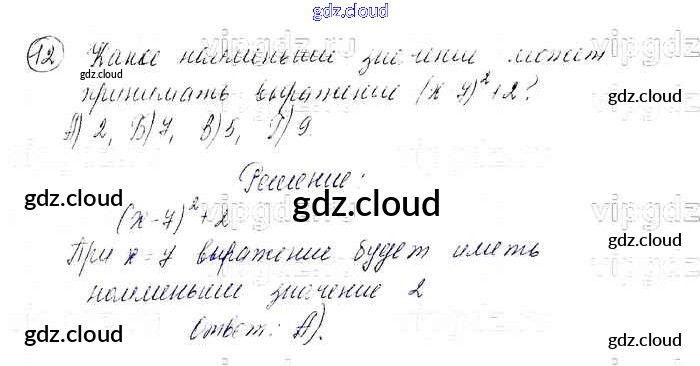 gdz.cloud
12 Какое наименьшее значение может
gdz.cloud
принимать выражение (x-7)²+2?
gdz.cloud
А) 2, Б) 7, В) 5, Г) 9.
Решение:
gdz.cloud gdz.cloud gdz.cloud
(x-7)²+2
При x=7 выражение будет иметь
наименьшее значение 2
Ответ: А).
gdz.cloud gdz.cloud gdz.cloud